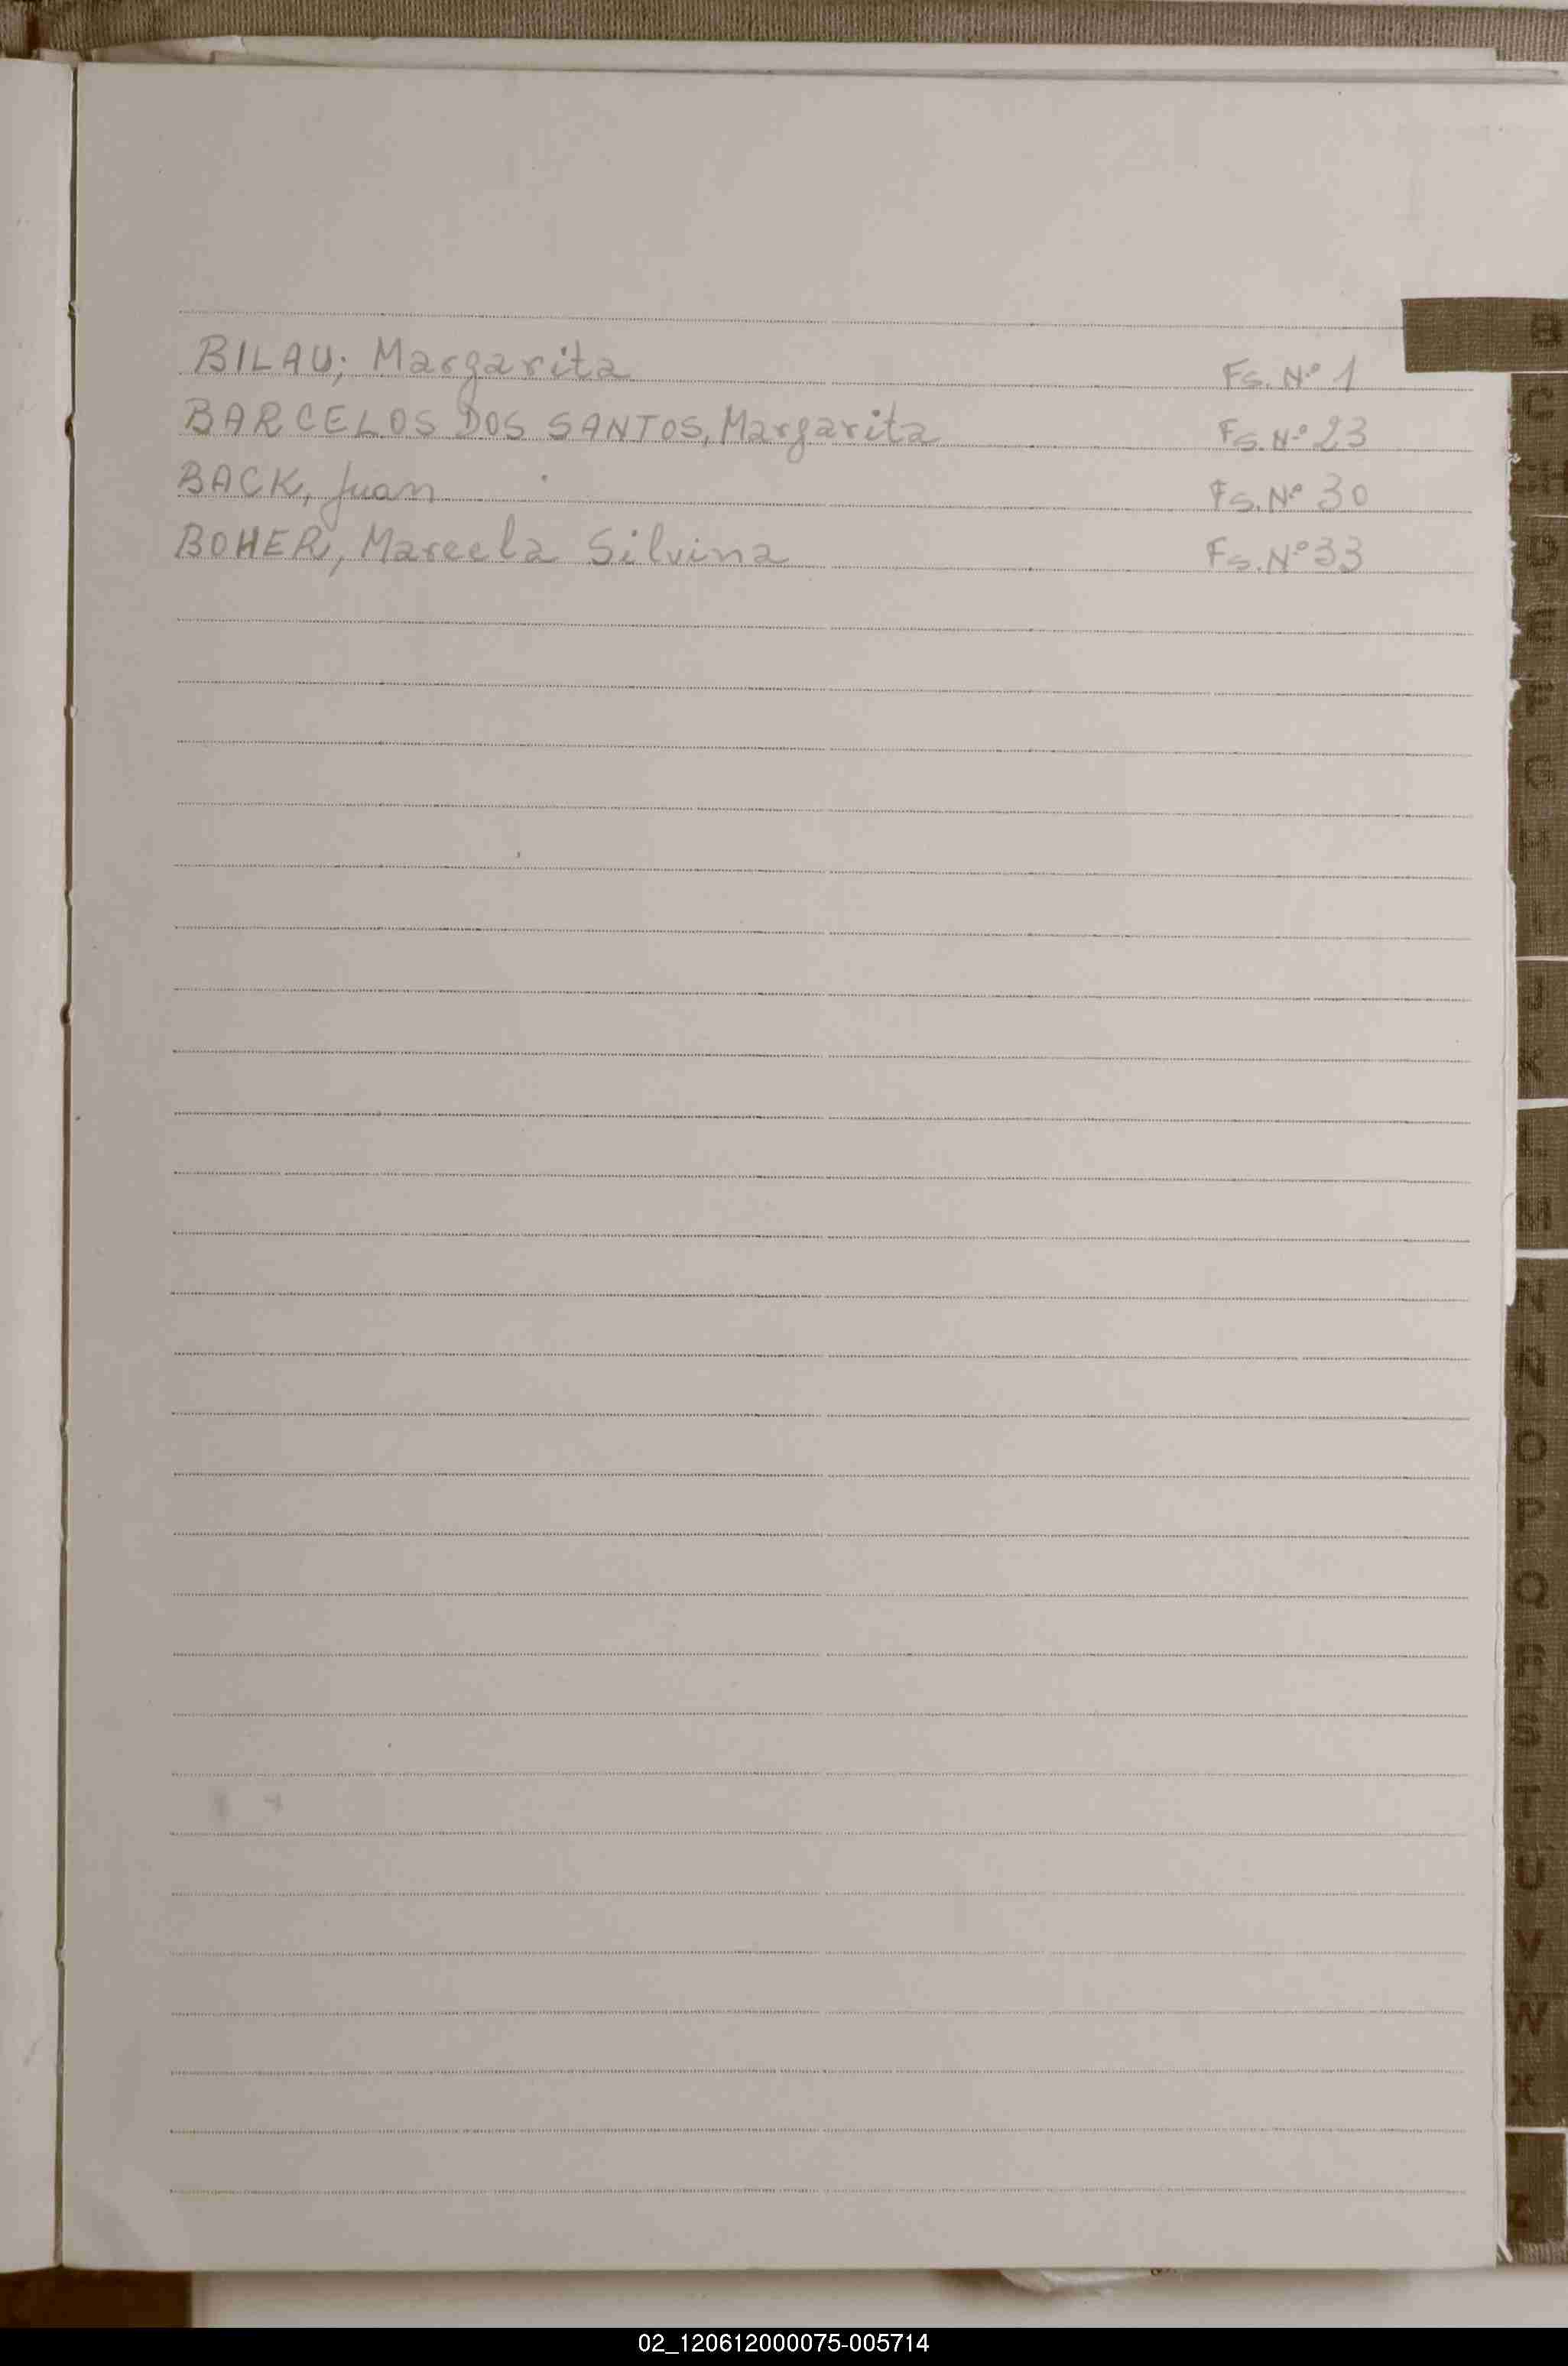 BILAU; Margarita Fs. Nº 1
BARCELOS DOS SANTOS, Margarita Fs. Nº 23
BACK, Juan Fs. Nº 30
BOHER, Marcela Silvina Fs. Nº 33
B
C
D
E
F
G
H
I
J
K
L
M
N
O
P
Q
R
S
T
U
V
W
X
Z
02_120612000075-005714